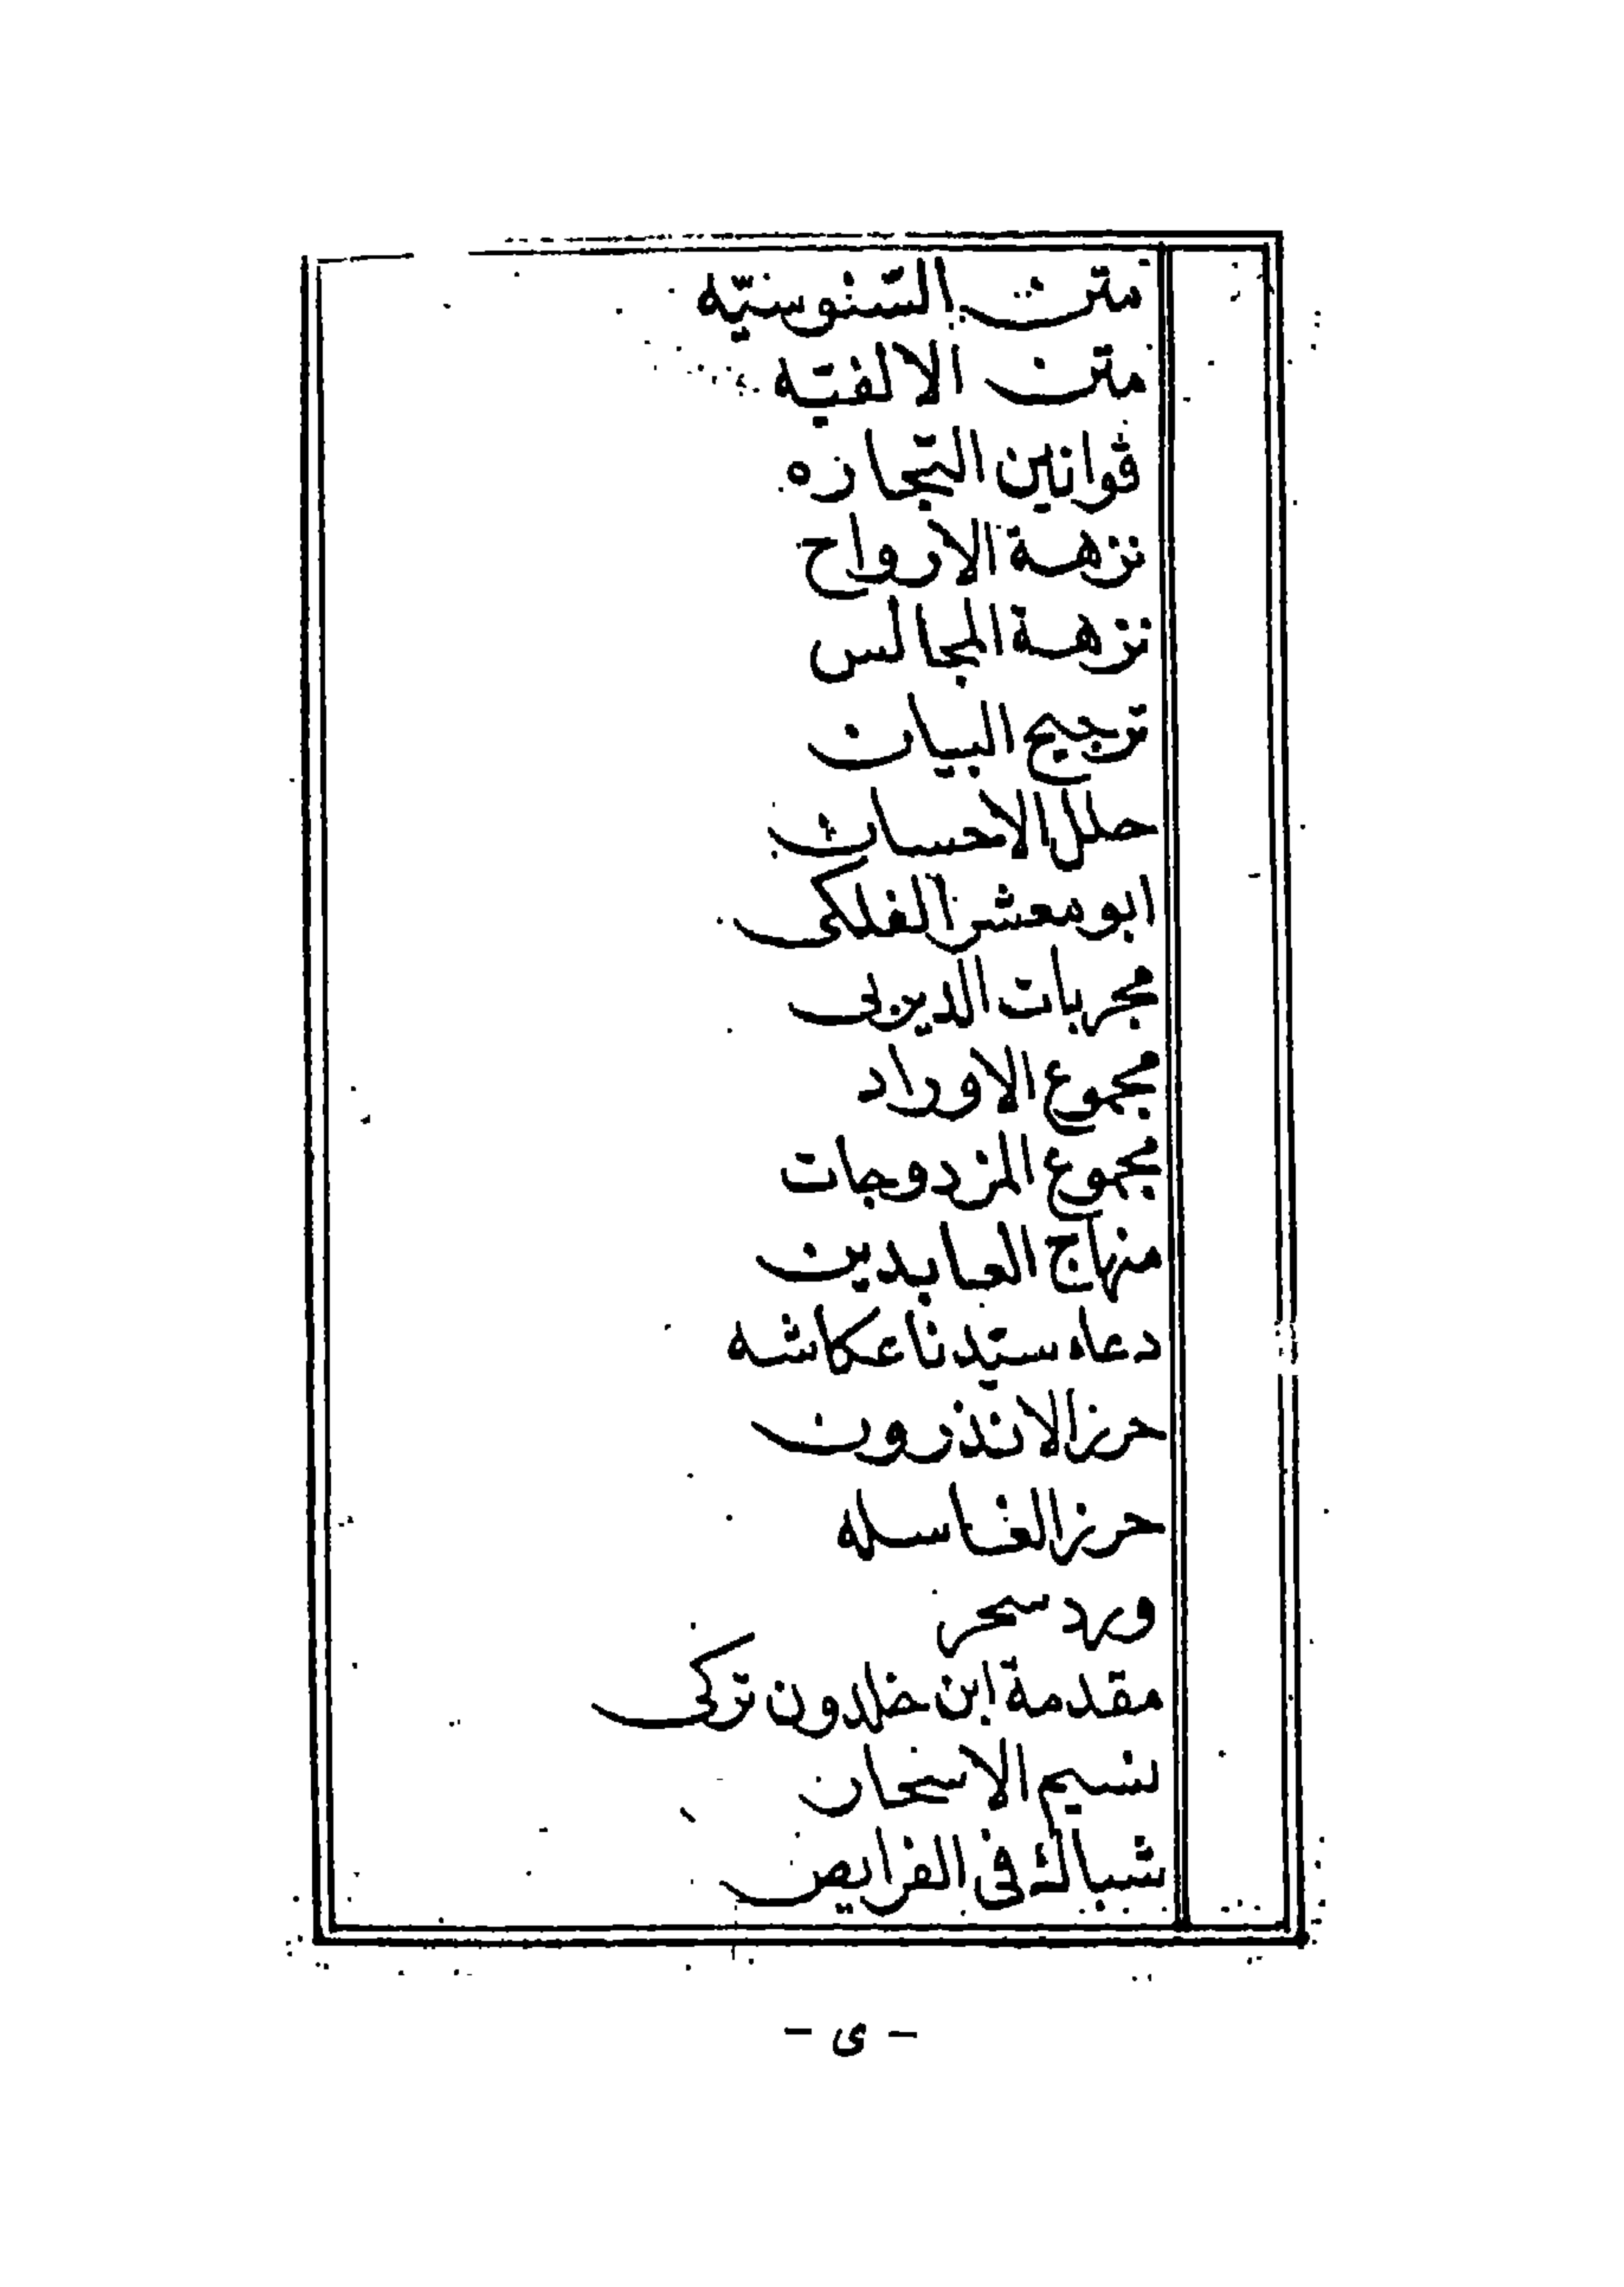 متن السّنوسيّه
متن الالفيّه
قوانين التّجاره
نزهة الارواح
نزهة المجالس
ترجيح البيان
حلل الاحسان
ابو معشر الفلكى
مجربات الديربى
مجموع الاوراد
مجموع المزدوجات
منهاج العابدين
دعاء سيّدنا عكاشه
حرز الاندرون
حرز الغاسله
ورد سحر
مقدمة ابن خلدون تركى
نسيم الاسحان
شباك فى الفرايض
- ى -